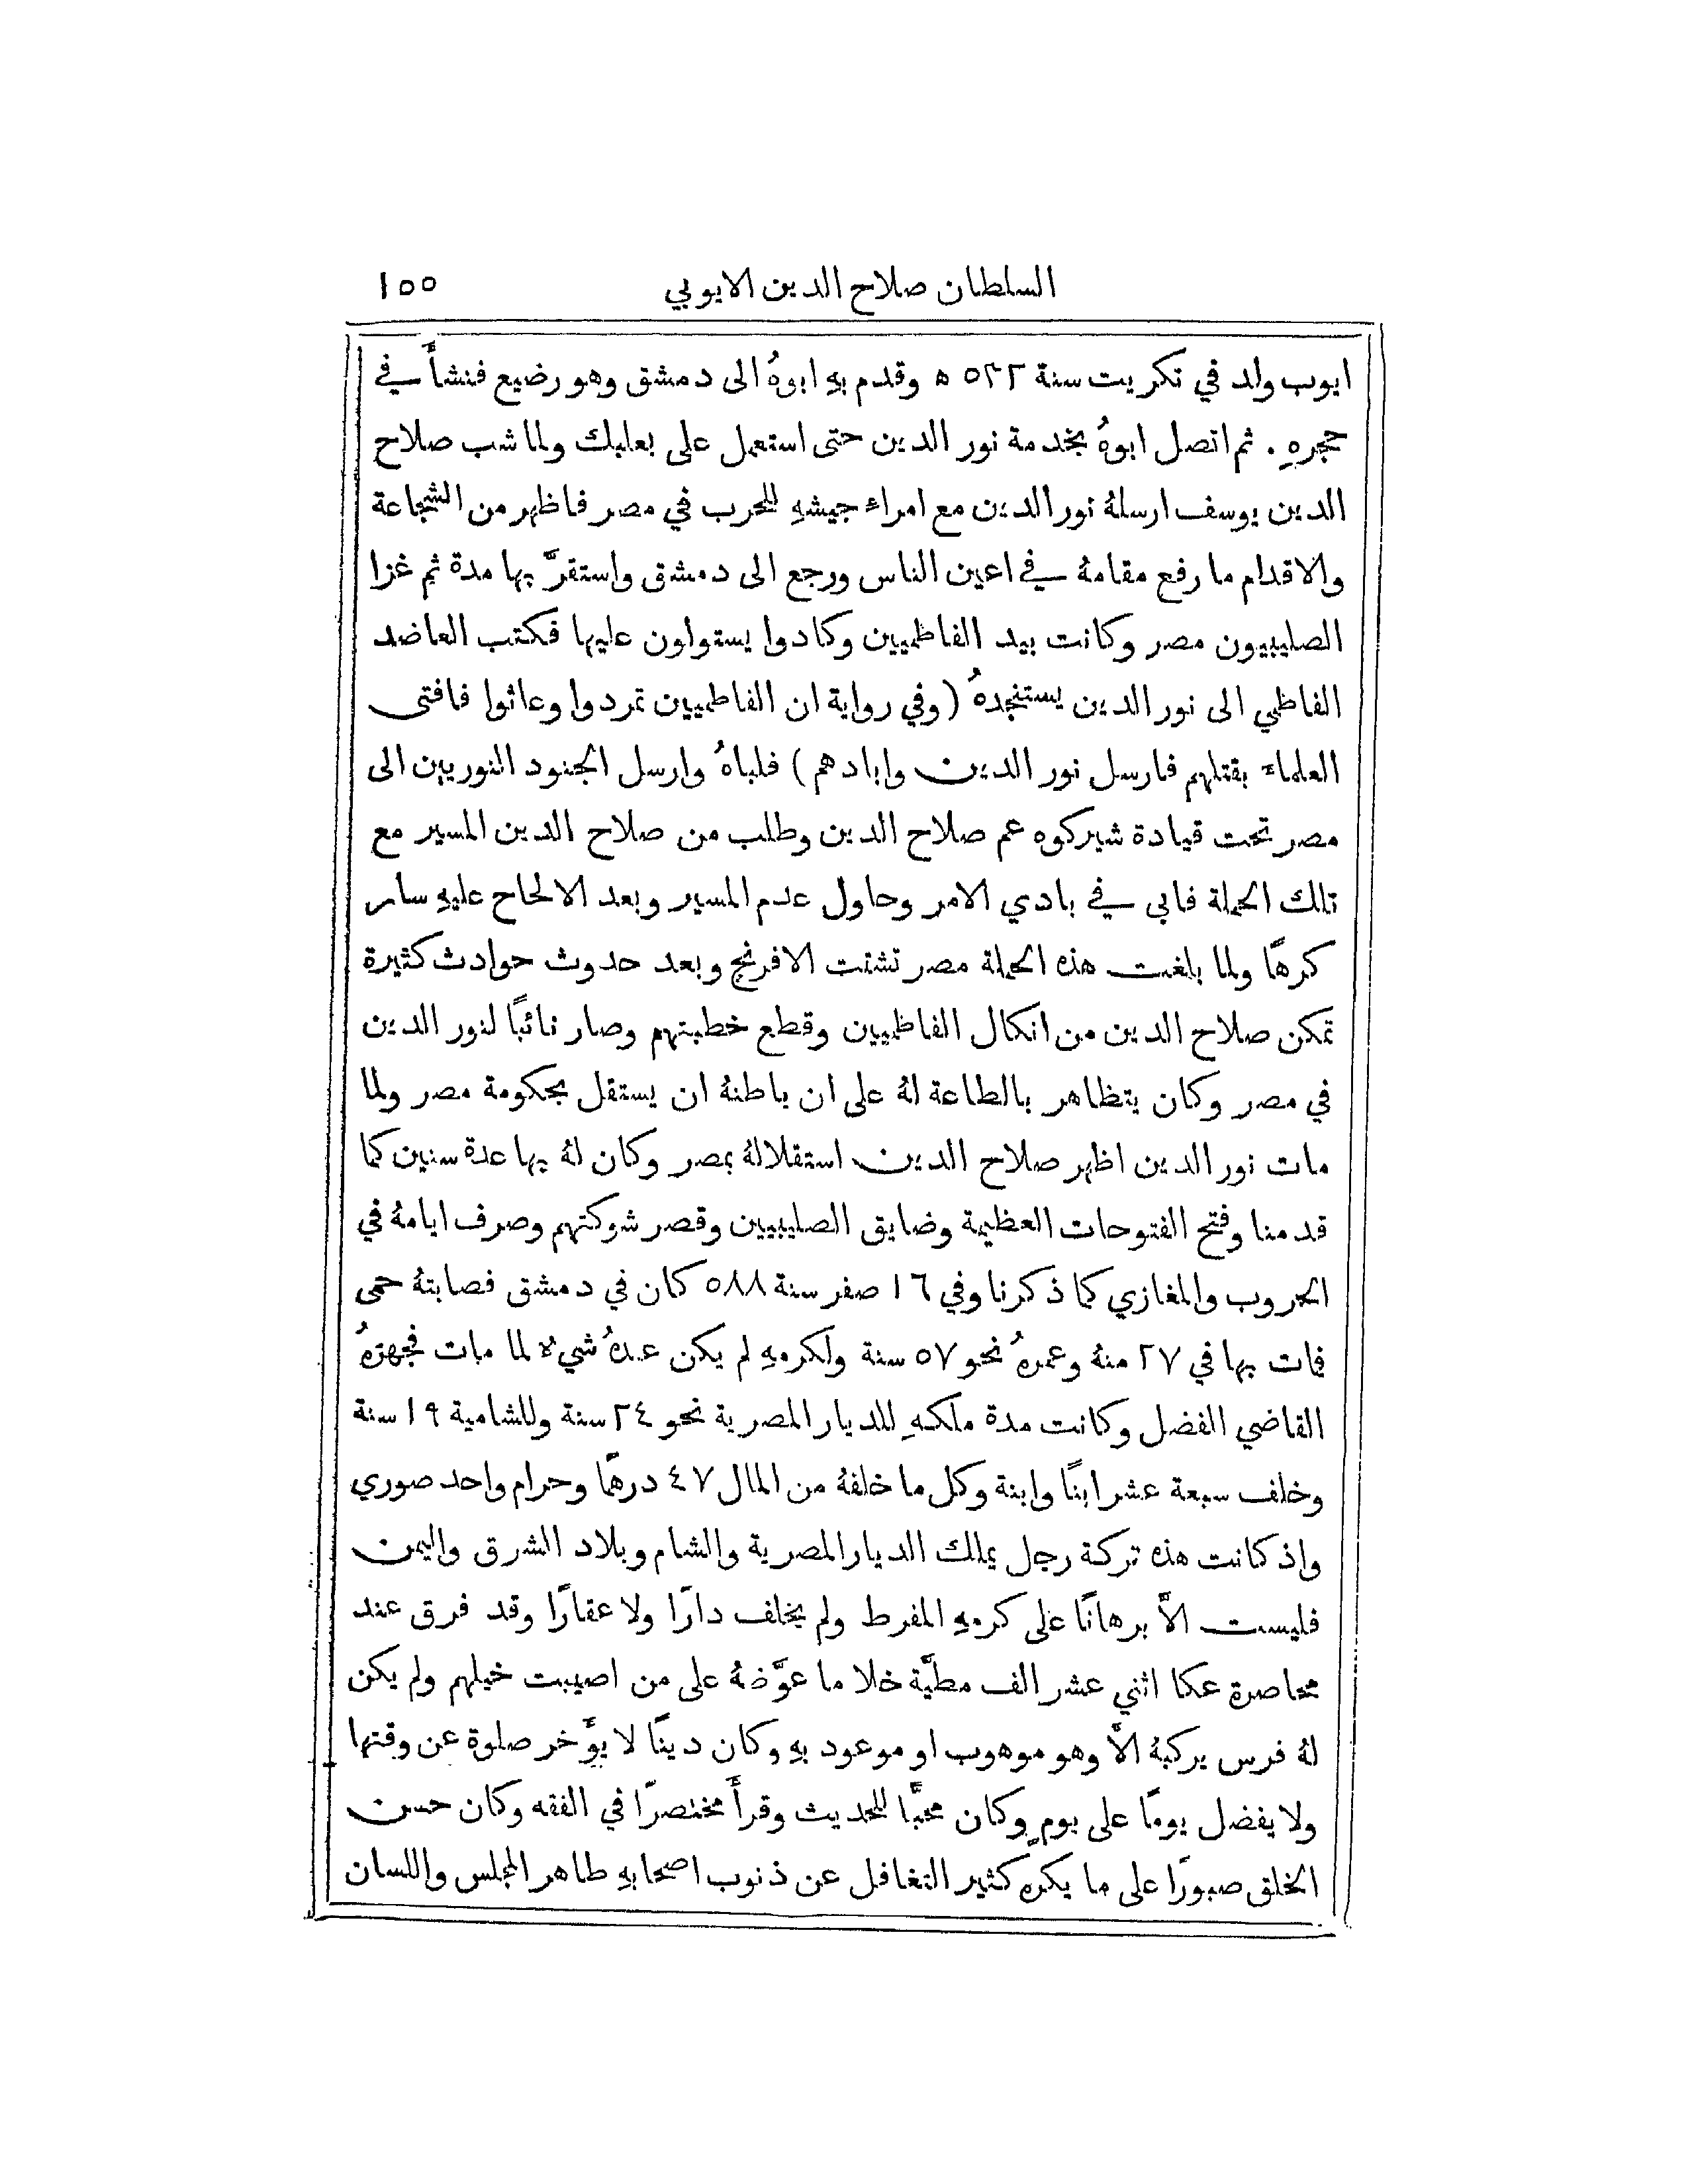 السلطان صلاح الدين الايوبي ١٥٥
ايوب ولد في تكريت سنة ٥٣٢ ه وقدم بهِ ابوهُ الى دمشق وهو رضيع فنشأ في
حجرهِ . ثم اتصل ابوهُ بخدمة نور الدين حتى استعمل على بعلبك ولما شب صلاح
الدين يوسف ارسلهُ نور الدين مع امراء جيشهِ للحرب في مصر فاظهر من الشجاعة
والاقدام ما رفع مقامهُ في اعين الناس ورجع الى دمشق واستقرَّ بها مدة ثم غزا
الصليبيون مصر وكانت بيد الفاطميين وكادوا يستولون عليها فكتب العاضد
الفاطمي الى نور الدين يستنجدهُ (وفي رواية ان الفاطميين تمردوا وعاثوا فافتى
العلماء بقتلهم فارسل نور الدين وابادهم) فلباهُ وارسل الجنود النوريين الى
مصر تحت قيادة شيركوه عم صلاح الدين وطلب من صلاح الدين المسير مع
تلك الحملة فابى في بادي الامر وحاول عدم المسير وبعد الالحاح عليهِ سار
كرهًا ولما بلغت هذه الحملة مصر تشتت الافرنج وبعد حدوث حوادث كثيرة
تمكن صلاح الدين من انكال الفاطميين وقطع خطبتهم وصار نائبًا لنور الدين
في مصر وكان يتظاهر بالطاعة لهُ على ان باطنهُ ان يستقل بحكومة مصر ولما
مات نور الدين اظهر صلاح الدين استقلالهُ بمصر وكان لهُ بها عدة سنين كما
قدمنا وفتح الفتوحات العظيمة وضايق الصليبيين وقصر شوكتهم وصرف ايامهُ في
الحروب والمغازي كما ذكرنا وفي ١٦ صفر سنة ٥٨٨ كان في دمشق فصابتهُ حمى
فمات بها في ٢٧ منهُ وعمرهُ نحو ٥٧ سنة ولكرمهِ لم يكن عندهُ شيءٌ لما مات فجهزهُ
القاضي الفضل وكانت مدة ملكهِ للديار المصرية نحو ٢٤ سنة وللشامية ١٩ سنة
وخلف سبعة عشر ابنًا وابنة وكل ما خلفهُ من المال ٤٧ درهمًا وحرام واحد صوري
واذ كانت هذه تركة رجل يملك الديار المصرية والشام وبلاد الشرق واليمن
فليست الاَّ برهانًا على كرمهِ المفرط ولم يخلف دارًا ولا عقارًا وقد فرق عند
محاصرة عكا اثني عشر الف مطيَّة خلا ما عوَّضهُ على من اصيبت خيلهم ولم يكن
لهُ فرس يركبهُ الاَّ وهو موهوب او موعود بهِ وكان دينًا لا يؤَخر صلوة عن وقتها
ولا يفضل يومًا على يومٍ وكان محبًّا للحديث وقرأَ مختصرًا في الفقه وكان حسن
الخلق صبورًا على ما يكرهِ كثير التغافل عن ذنوب اصحابهِ طاهر المجلس واللسان